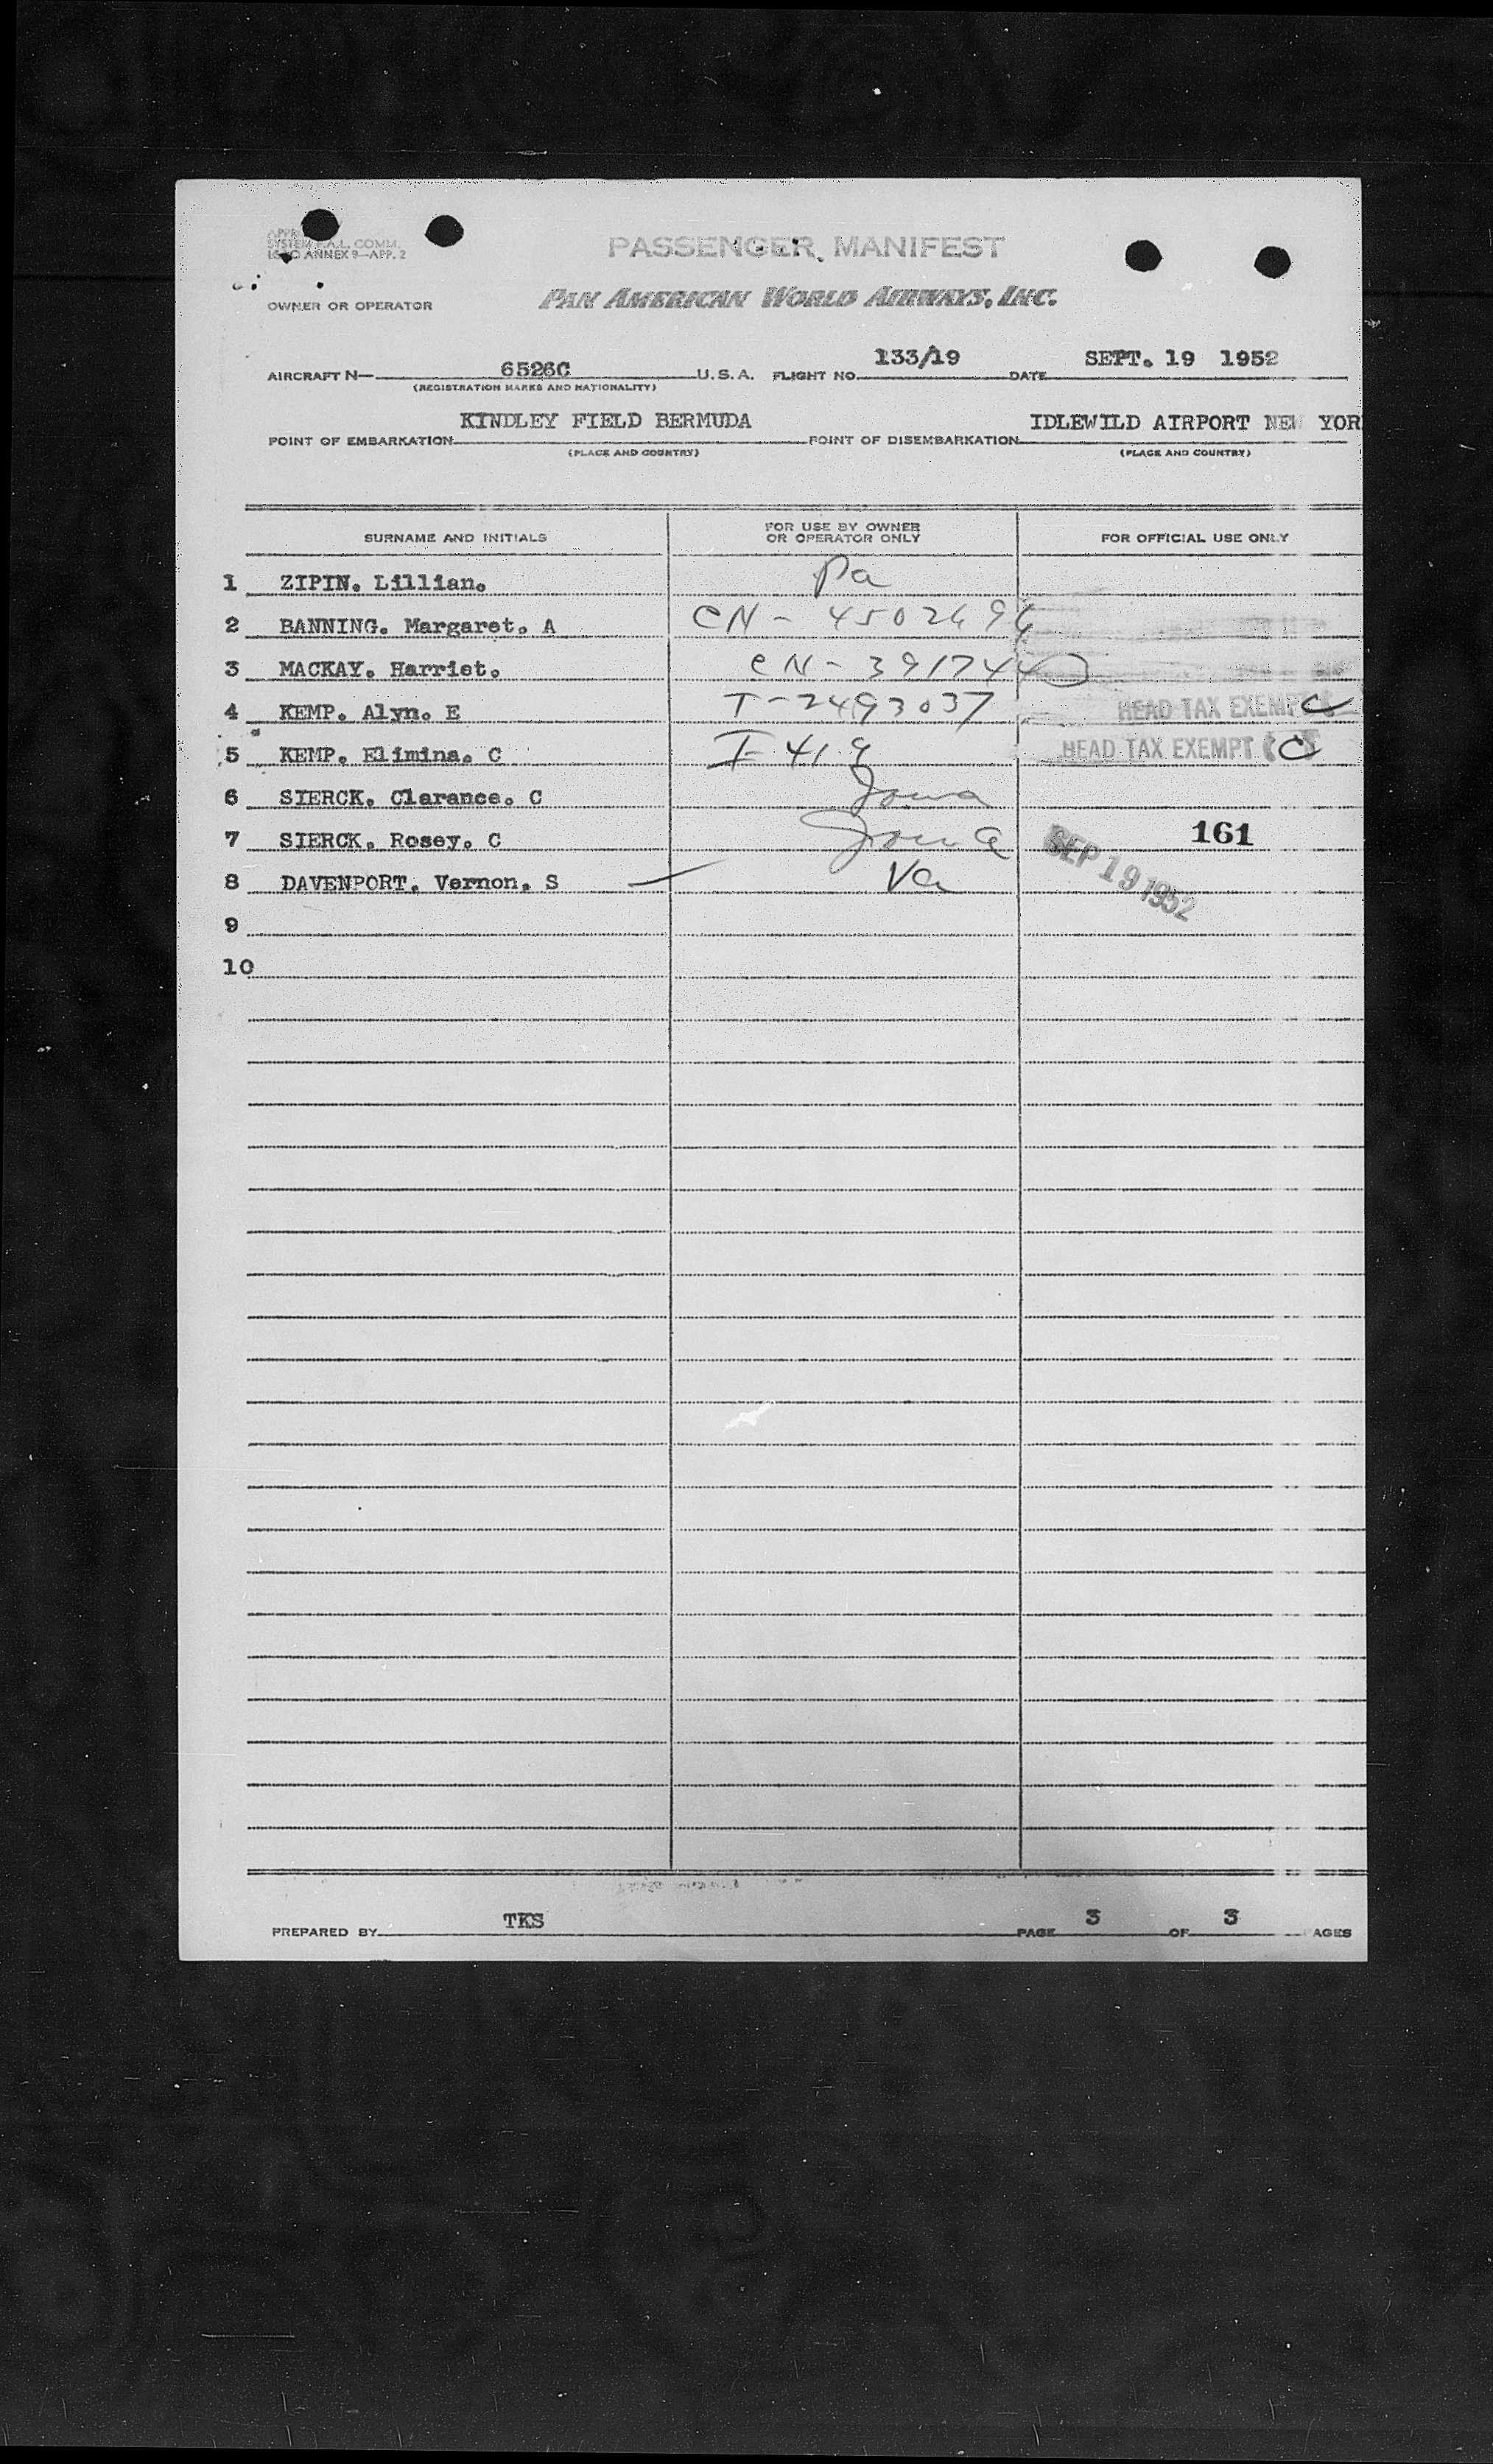 SYSTEM F.A.L. COMM.
ICAO ANNEX 9—APP. 2
PASSENGER MANIFEST
OWNER OR OPERATOR PAN AMERICAN WORLD AIRWAYS, INC.
AIRCRAFT N— 6526C U.S.A. FLIGHT NO. 133/19 DATE SEPT. 19 1952
(REGISTRATION MARKS AND NATIONALITY)
POINT OF EMBARKATION KINDLEY FIELD BERMUDA POINT OF DISEMBARKATION IDLEWILD AIRPORT NEW YOR
(PLACE AND COUNTRY) (PLACE AND COUNTRY)
SURNAME AND INITIALS FOR USE BY OWNER OR OPERATOR ONLY FOR OFFICIAL USE ONLY
1 ZIPIN. Lillian. Pa
2 BANNING. Margaret. A CN-
3 MACKAY. Harriet. CN-3917440
4 KEMP. Alyn. E T-2493037 HEAD TAX EXEMPT C
5 KEMP. Elimina. C I-419 HEAD TAX EXEMPT C
6 SIERCK. Clarance. C Iowa
7 SIERCK. Rosey. C Iowa 161
8 DAVENPORT. Vernon. S Va
SEP 19 1952
9
10
PREPARED BY TKS PAGE 3 OF 3 AGES